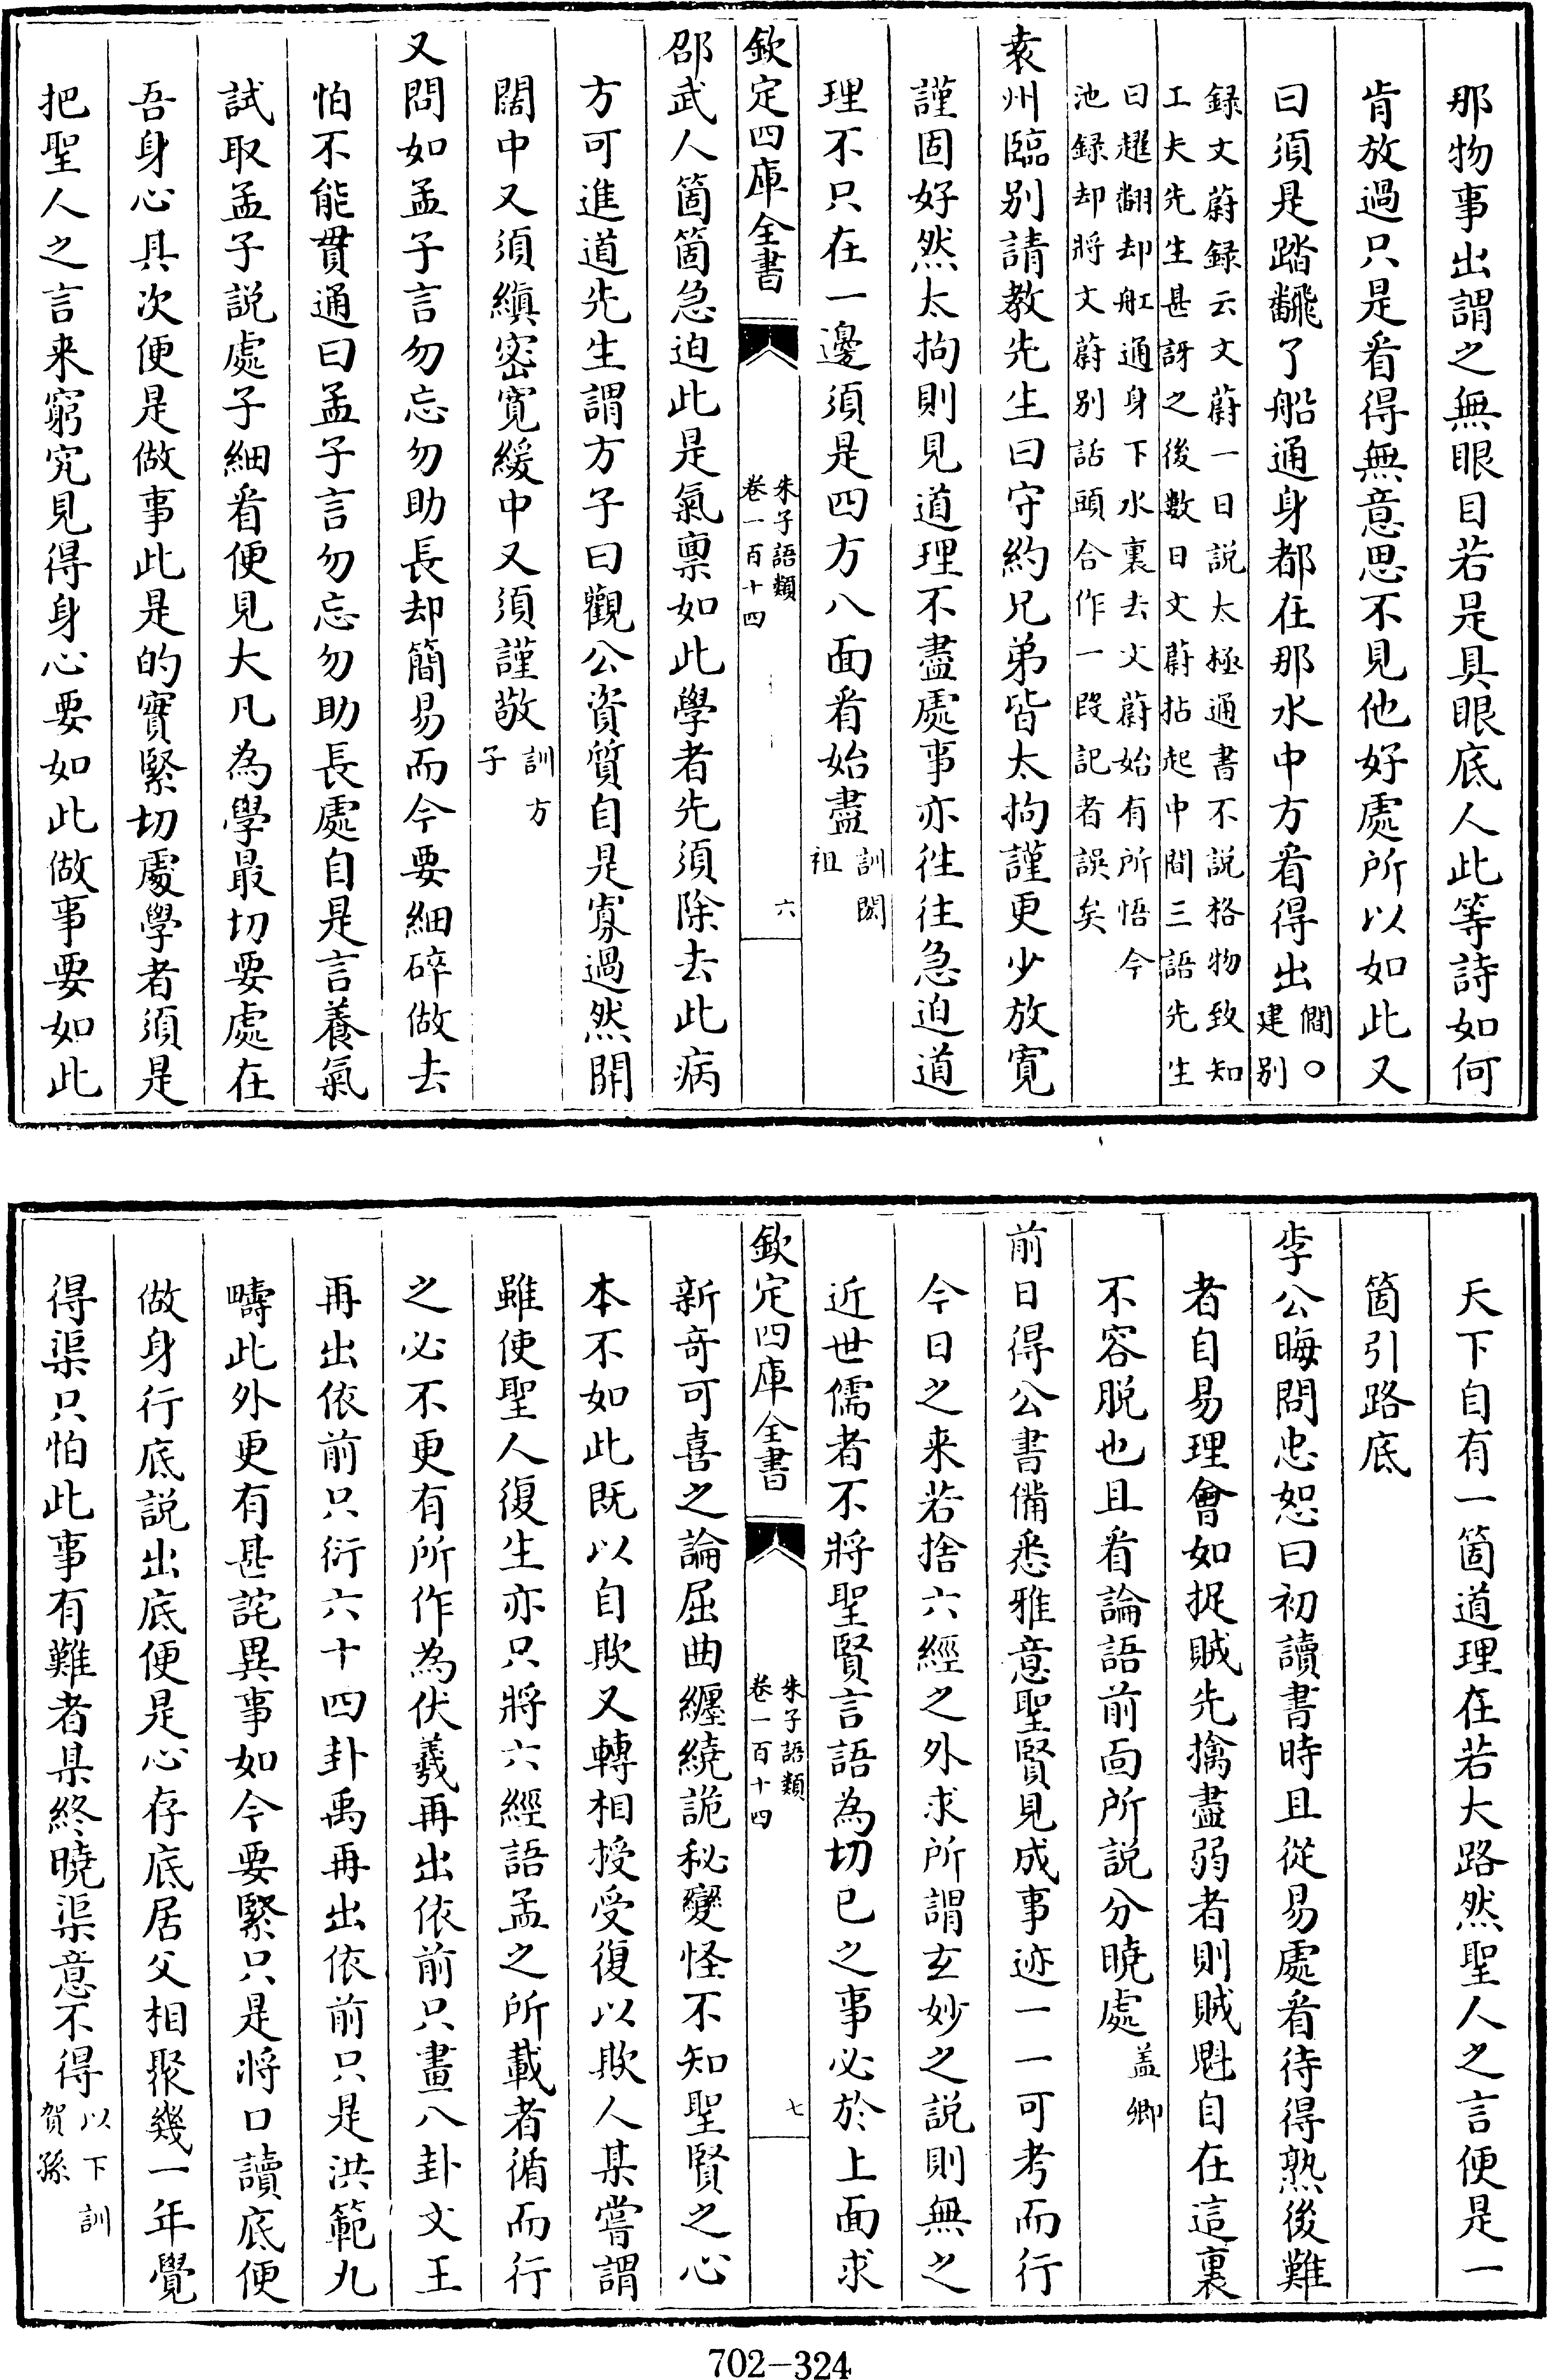 那物事出謂之無眼目若是具眼底人此等詩如何
肯放過只是看得無意思不見他好處所以如此又
曰須是踏飜了船通身都在那水中方看得出僩○建别
録文蔚録云文蔚一日説太極通書不説格物致知
工夫先生甚訝之後數日文蔚拈起中間三語先生
曰趯翻却舡通身下水裏去文蔚始有所悟今
池録却將文蔚别話頭合作一段記者誤矣
袁州臨别請教先生曰守約兄弟皆太拘謹更少放寛
謹固好然太拘則見道理不盡處事亦徃往急迫道
理不只在一邊須是四方八面看始盡訓閎祖
欽定四庫全書
朱子語類
卷一百十四
六
邵武人箇箇急迫此是氣稟如此學者先須除去此病
方可進道先生謂方子曰觀公資質自是寡過然開
闊中又須縝密寛緩中又須謹敬訓方子
又問如孟子言勿忘勿助長却簡易而今要細碎做去
怕不能貫通曰孟子言勿忘勿助長處自是言養氣
試取孟子説處子細看便見大凡為學最切要處在
吾身心其次便是做事此是的實緊切處學者須是
把聖人之言来窮究見得身心要如此做事要如此
天下自有一箇道理在若大路然聖人之言便是一
箇引路底
李公晦問忠恕曰初讀書時且從易處看待得熟後難
者自易理會如捉賊先擒盡弱者則賊魁自在這裏
不容脱也且看論語前面所説分曉處盖卿
前日得公書備悉雅意聖賢見成事迹一一可考而行
今日之来若捨六經之外求所謂玄妙之説則無之
近世儒者不將聖賢言語為切已之事必於上面求
欽定四庫全書
朱子語類
卷一百十四
七
新奇可喜之論屈曲纒繞詭秘變怪不知聖賢之心
本不如此既以自欺又轉相授受復以欺人某嘗謂
雖使聖人復生亦只將六經語孟之所載者循而行
之必不更有所作為伏羲再出依前只畫八卦文王
再出依前只衍六十四卦禹再出依前只是洪範九
疇此外更有甚詫異事如今要緊只是將口讀底便
做身行底説出底便是心存底居父相聚幾一年覺
得渠只怕此事有難者某終曉渠意不得以下訓賀孫
702-324